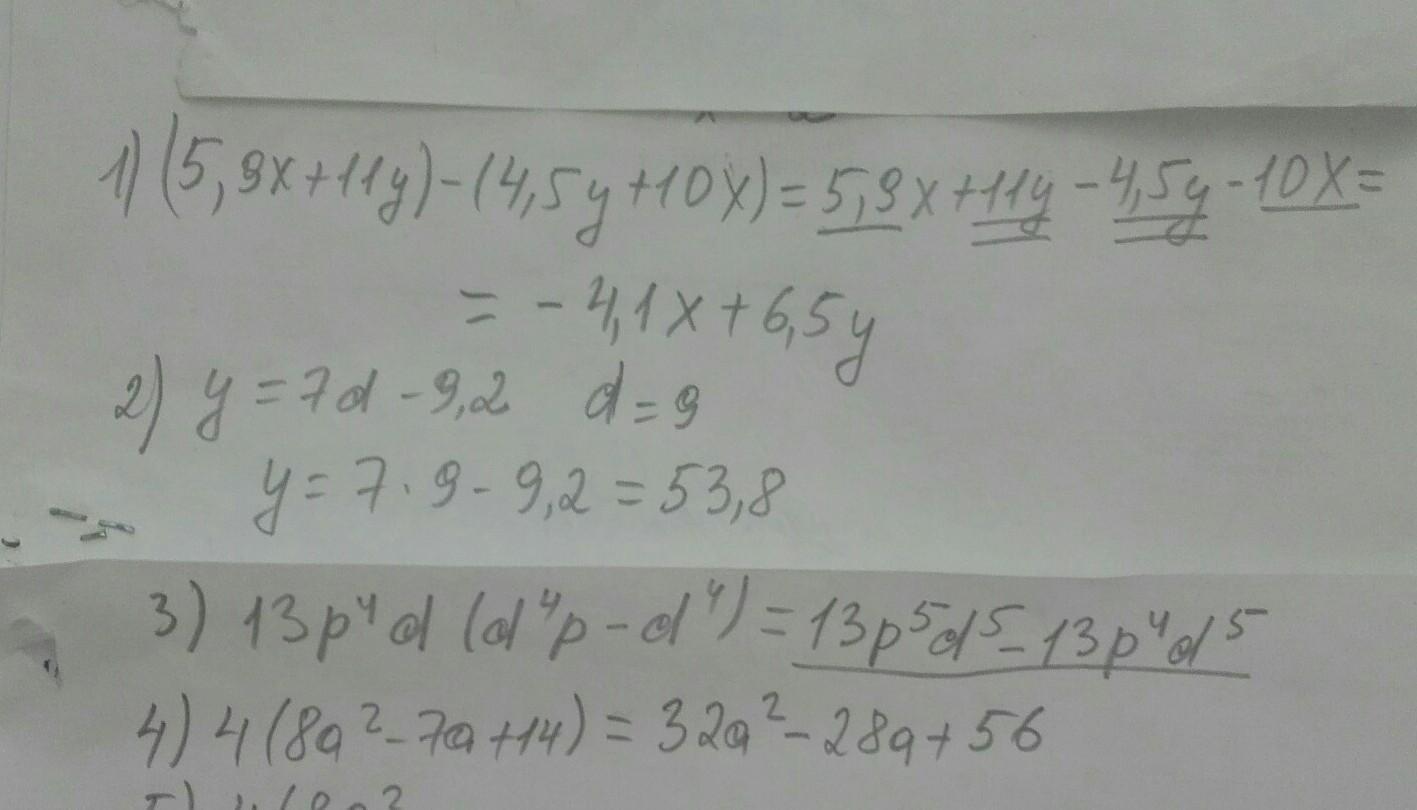 1) (5,9x+11y)-(4,5y+10x)=5,9x+11y-4,5y-10x=
= -4,1x+6,5y
2) y=7d-9,2 d=9
y=7·9-9,2=53,8
3) 13p⁴d(d⁴p-d⁴)=13p⁵d⁵-13p⁴d⁵
4) 4(8a²-7a+14)=32a²-28a+56